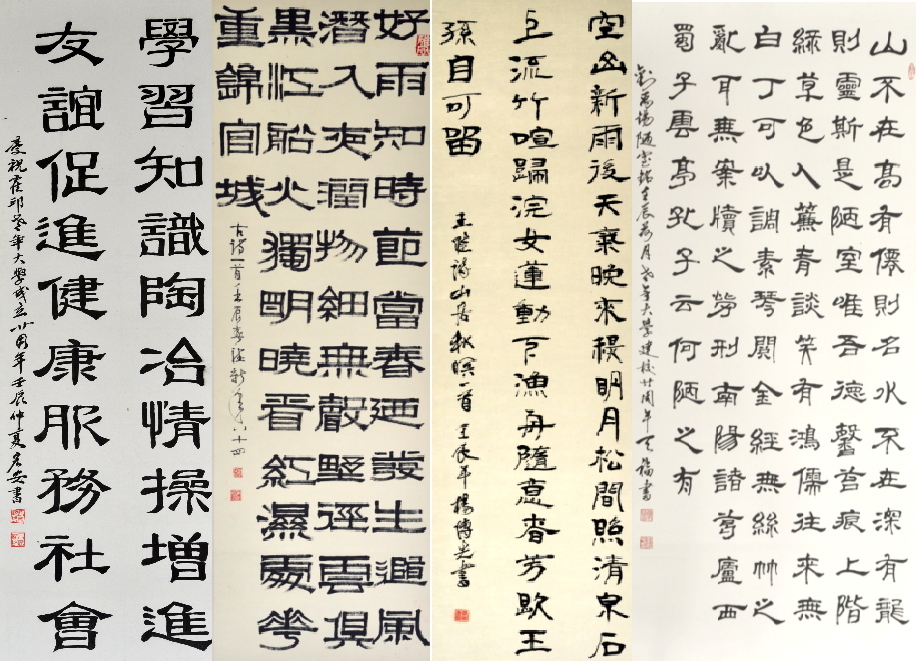 學習知識陶冶情操增進
友誼促進健康服務社會
慶祝霍邱老年大學成立廿周年壬辰仲夏彦安書
好雨知時節當春迺發生隨風
潛入夜潤物細無聲野徑雲俱
黑江船火獨明曉看紅濕處花
重錦官城
古詩一首壬辰春年八十四
空山新雨後天氣晚來秋明月松間照清泉石
上流竹喧歸浣女蓮動下漁舟隨意春芳歇王
孫自可留
王維詩山居秋暝一首壬辰年楊傳書
山不在高有僊則名水不在深有龍
則靈斯是陋室唯吾德馨苔痕上階
綠草色入簾青談笑有鴻儒往來無
白丁可以調素琴閱金經無絲竹之
亂耳無案牘之勞形南陽諸葛廬西
蜀子雲亭孔子云何陋之有
劉禹錫陋室銘壬辰荷月老年大學建校廿周年天福書